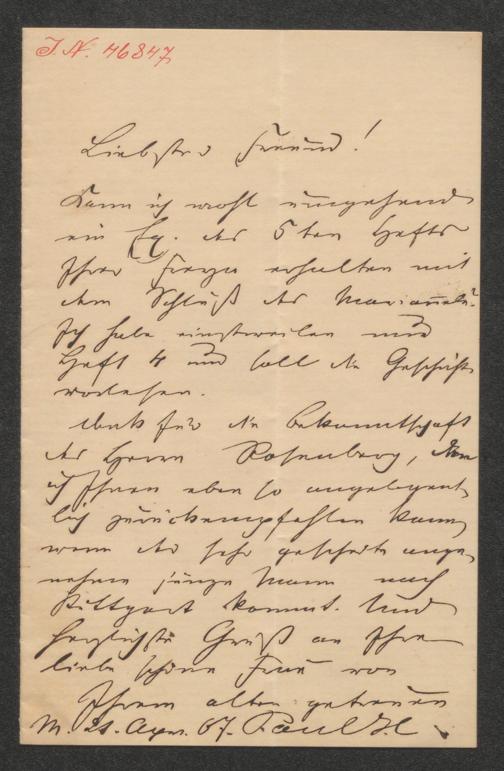 I.N. 46847
Liebster Freund!
Kann ich wohl umgehend
ein Ex. des 5ten Hefts
Ihrer erhalten mit
dem Schluß der
Ich habe einstweilen nur
Heft 4 und soll die Geschichte
vorlesen.
Dank für die Bekanntschaft
des Herrn Rosenberg, den
ich Ihnen eben so angelegent-
lich zurückempfehlen kann,
wenn der sehr gescheite ange-
nehme junge Mann nach
Stuttgart kommt. Und
herzlichste Grüß an Ihre
liebe schöne Frau von
Ihrem alten getreuen
M. 21. 67. Paul H.